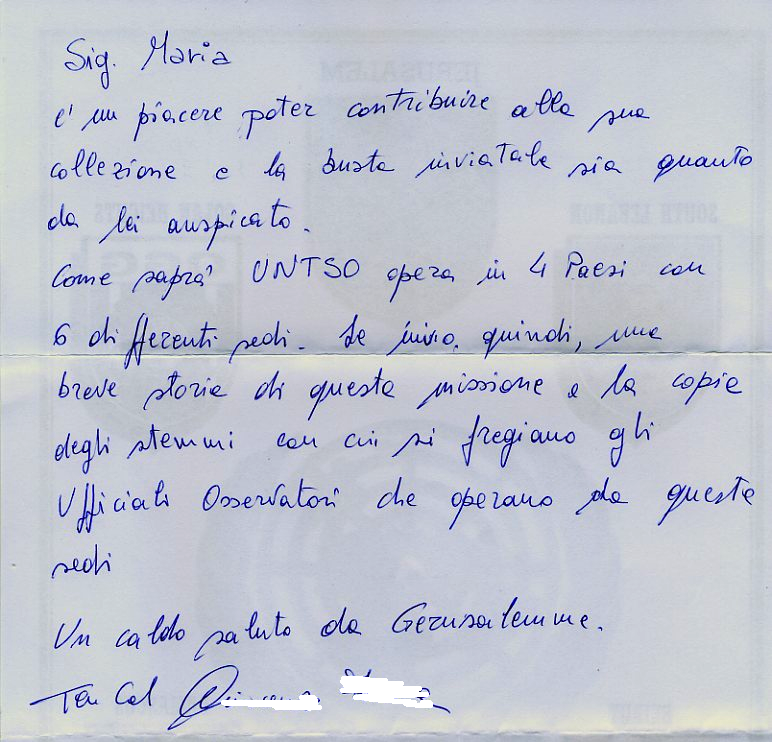 Sig. Maria
e' un piacere poter contribuire alla sua
collezione e la busta inviatale sia quanto
da lei auspicato.
Come saprà UNTSO opera in 4 Paesi con
6 differenti sedi. Le invio, quindi, una
breve storia di questa missione e la copia
degli stemmi con cui si fregiano gli
Ufficiali Osservatori che operano da queste
sedi
Un caldo saluto da Gerusalemme.
Ten Col
JERUSALEM
SOUTH LEBANON